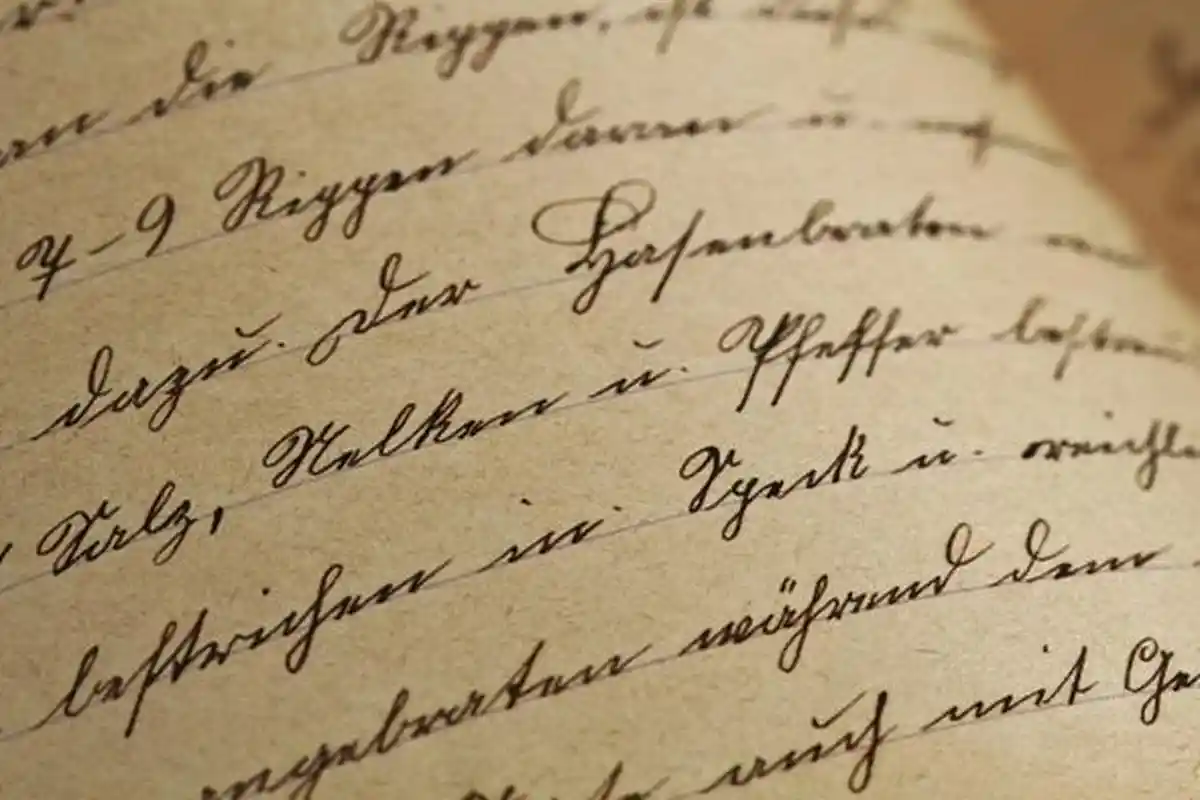 an die Rippen, ist diese
7–9 Rippen daran u.
dazu. Der Hasenbraten
Salz, Nelken u. Pfeffer
bestrichen in Speck u.
angebraten während dem
auch mit Ge